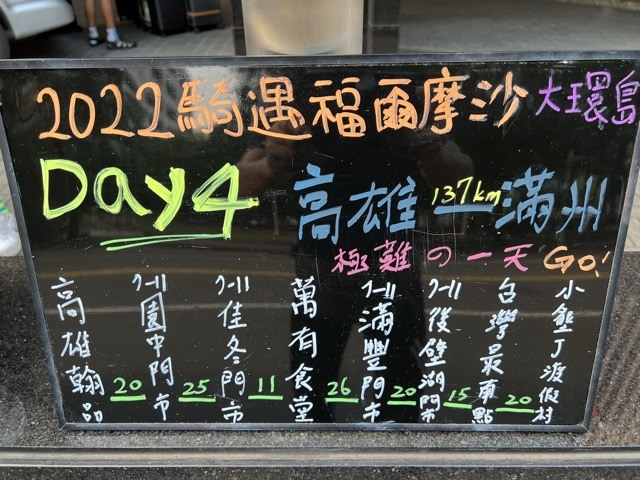 2022騎遇福爾摩沙 大環島
Day4 高雄 137km 滿州
極難の一天 Go!
高雄翰品
20
7-11園中門市
25
7-11佳冬門市
11
萬有食堂
26
7-11滿豐門市
20
7-11後壁湖門市
15
台灣最南點
20
小墾丁渡假村